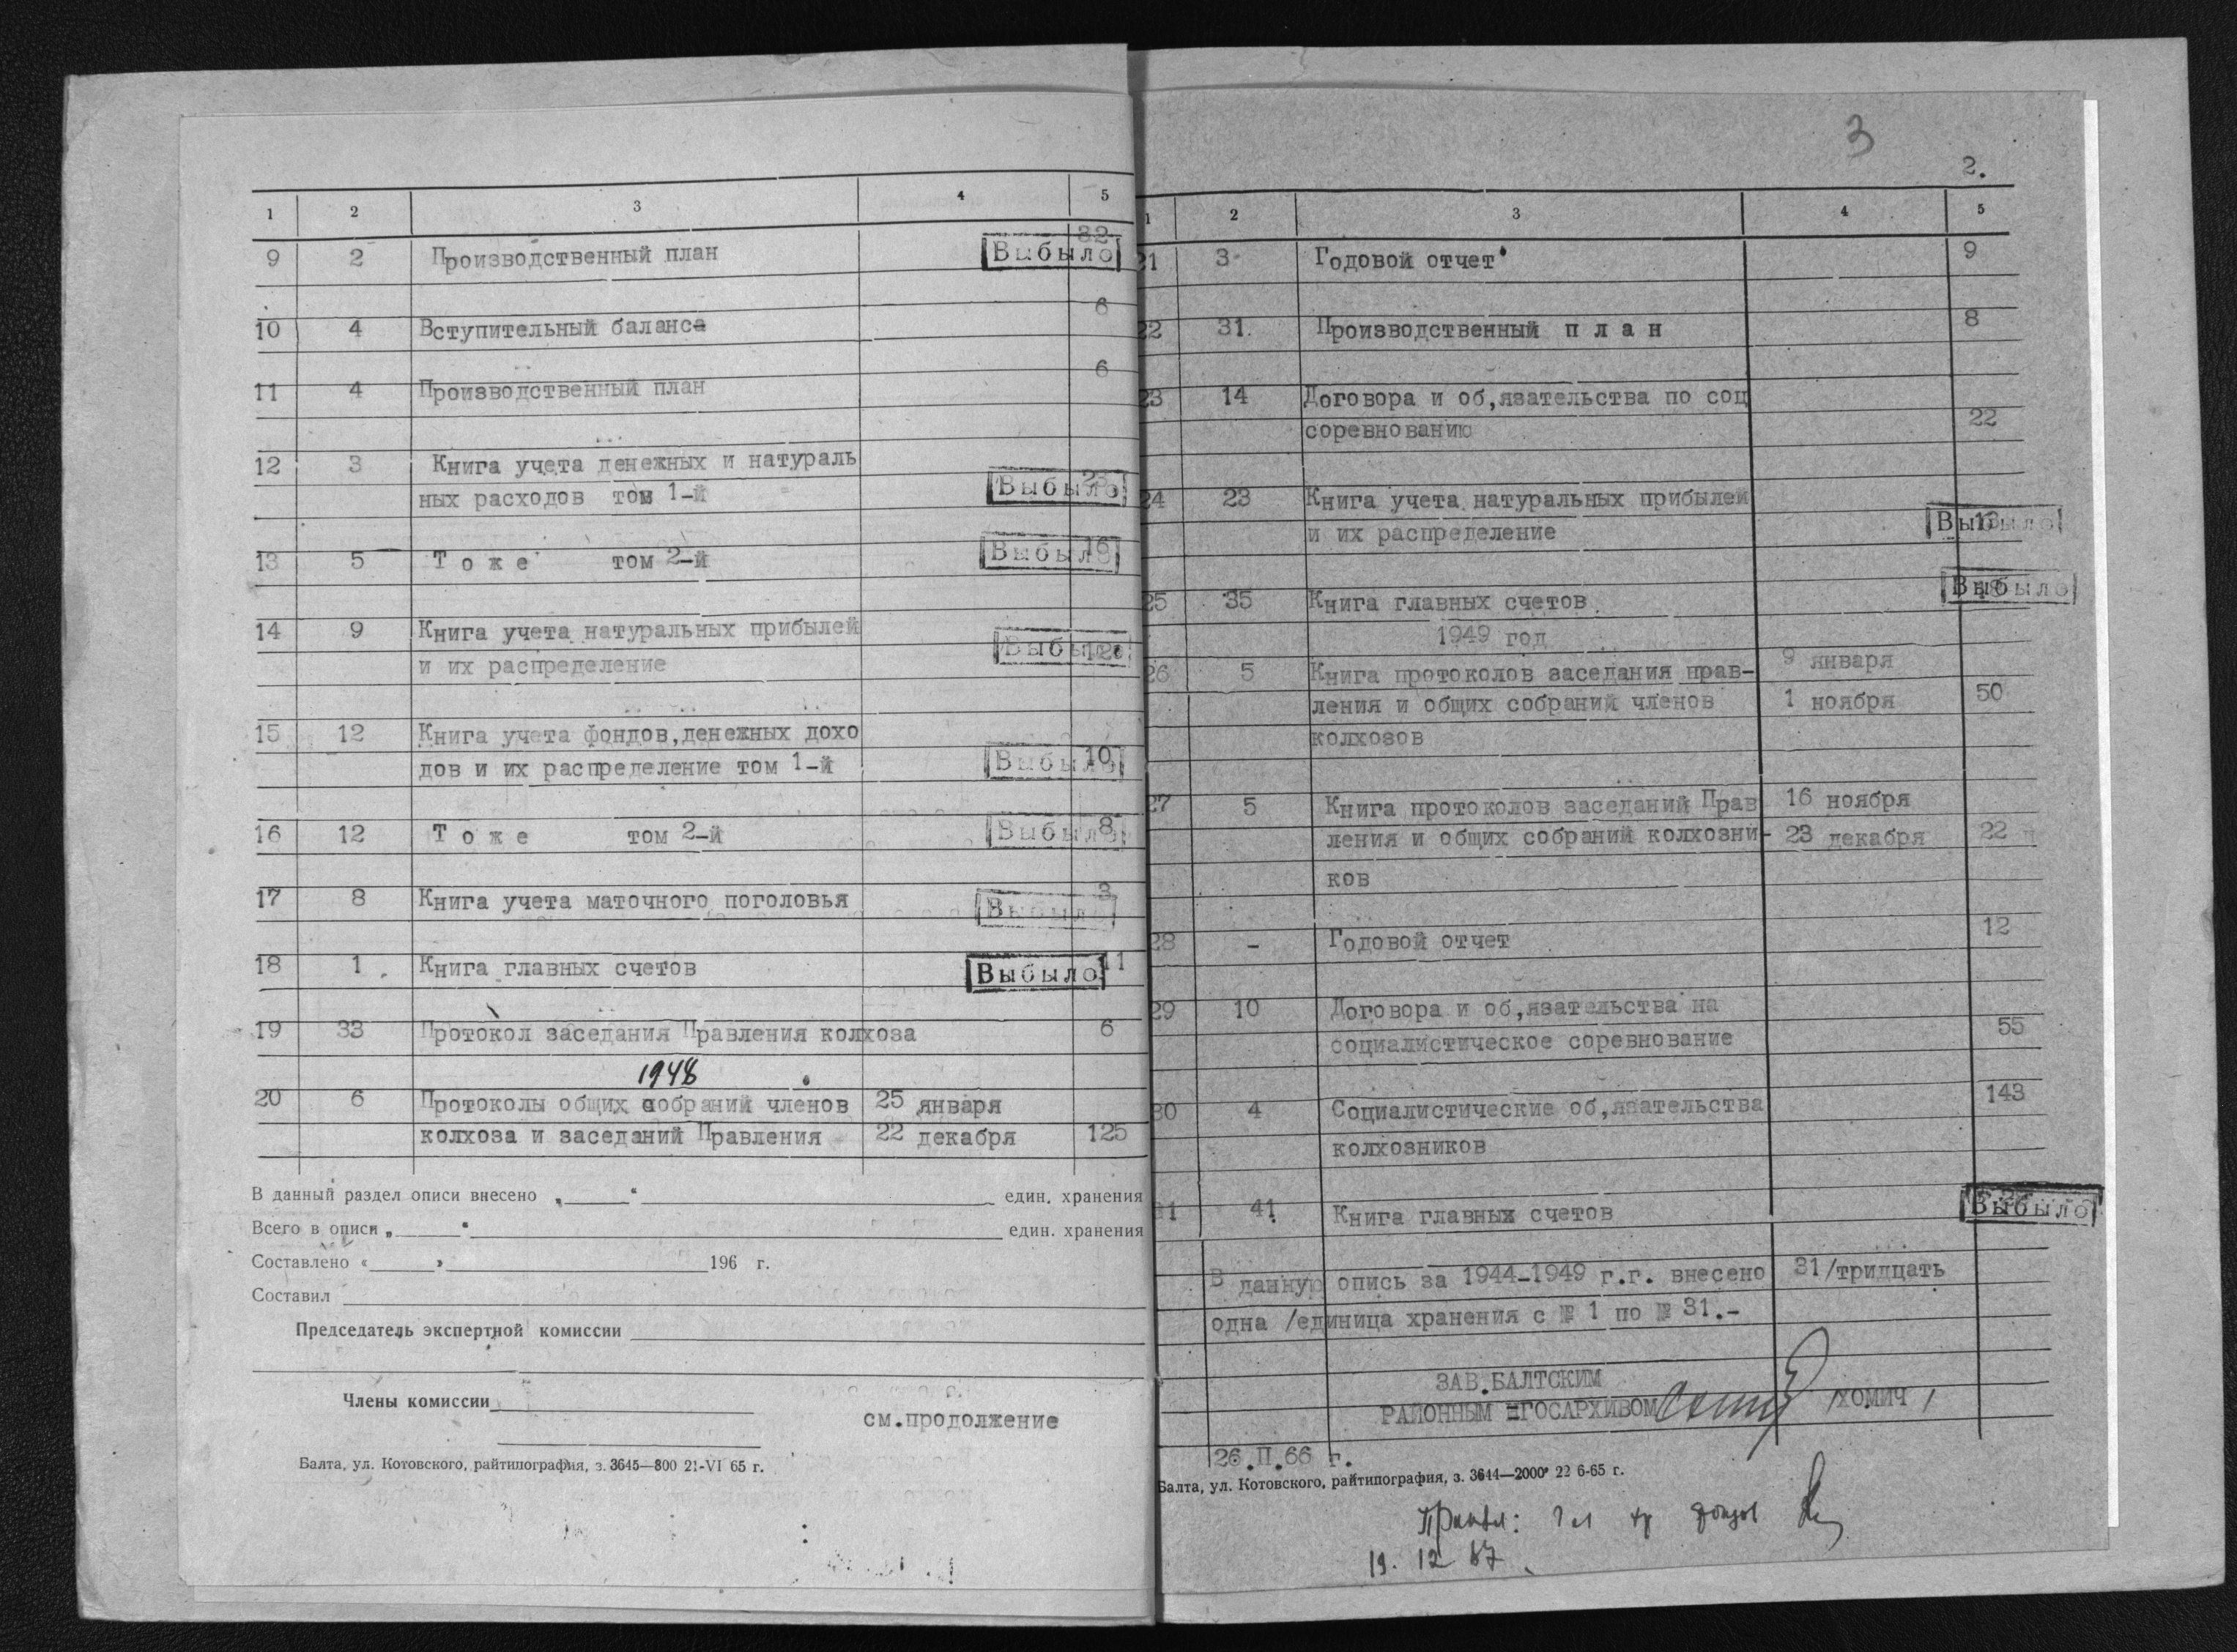 1 2 3 4 5
32
9 2 Производственный план Выбыло
6
10 4 Вступительный баланса
6
11 4 Производственный план
12 3 Книга учета денежных и натураль
ных расходов том 1-й Выбыло
13 5 Т о ж е том 2-й Выбыло 16
14 9 Книга учета натуральных прибылей
и их распределение Выбыло
15 12 Книга учета фондов,денежных дохо
дов и их распределение том 1-й Выбыло 10
16 12 Т о ж е том 2-й Выбыло 8
17 8 Книга учета маточного поголовья Выбыло 3
18 1 Книга главных счетов Выбыло 11
19 33 Протокол заседания Правления колхоза 6
1948
20 6 Протоколы общих собраний членов 25 января
колхоза и заседаний Правления 22 декабря 125
В данный раздел описи внесено „ “ един. хранения
Всего в описи „ “ един. хранения
Составлено « » 196 г.
Составил
Председатель экспертной комиссии
Члены комиссии
см.продолжение
Балта, ул. Котовского, райтипография, з. 3645—800 21-VI 65 г.
3
2.
1 2 3 4 5
21 3 Годовой отчет 9
22 31. Производственный п л а н 8
23 14 Договора и об,язательства по соц
соревнованию 22
24 23 Книга учета натуральных прибылей
и их распределение Выбыло
25 35 Книга главных счетов Выбыло
1949 год
26 5 Книга протоколов заседания прав- 9 января
ления и общих собраний членов 1 ноября 50
колхозов
27 5 Книга протоколов заседаний Прав 16 ноября
ления и общих собраний колхозни- 23 декабря 22
ков
28 - Годовой отчет 12
29 10 Договора и об,язательства на
социалистическое соревнование 55
30 4 Социалистические об,язательства 143
колхозников
31 41 Книга главных счетов Выбыло
В данную опись за 1944-1949 г.г. внесено 31/тридцать
одна /единица хранения с № 1 по № 31.-
ЗАВ.БАЛТСКИМ
РАЙОННЫМ ГОСАРХИВОМ /ХОМИЧ /
26.II.66 г.
Балта, ул. Котовского, райтипография, з. 3644—2000 22 6-65 г.
19. 12 87